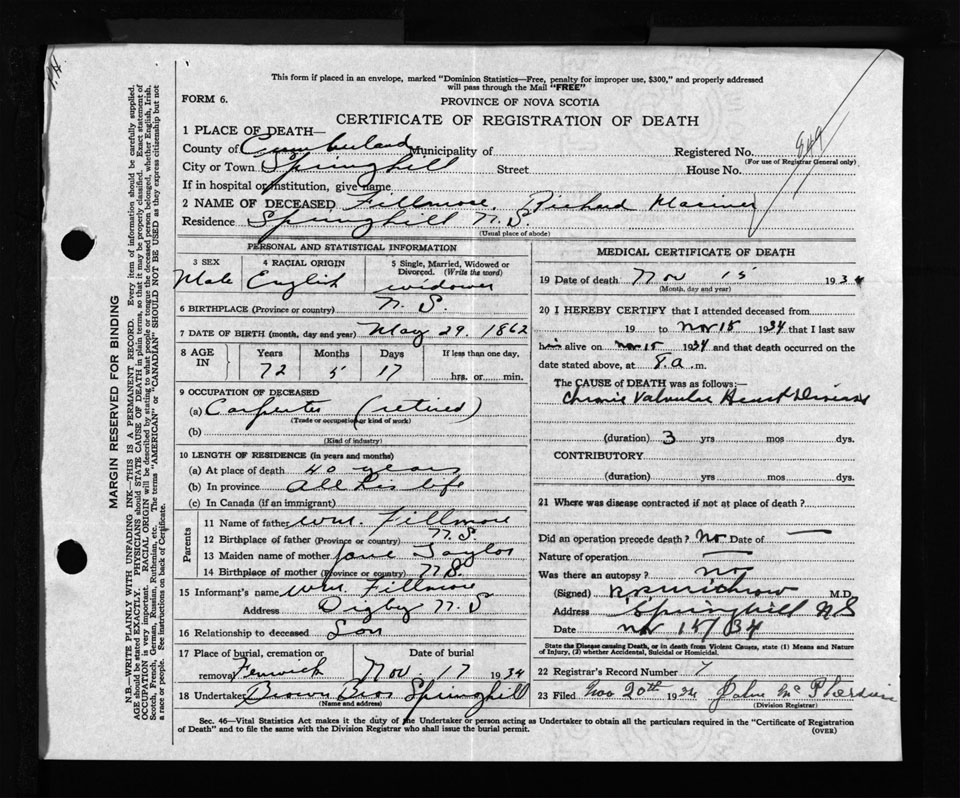 This form if placed in an envelope, marked "Dominion Statistics—Free, penalty for improper use, $300," and properly addressed
will pass through the Mail "FREE"
FORM 6.
PROVINCE OF NOVA SCOTIA
CERTIFICATE OF REGISTRATION OF DEATH
1 PLACE OF DEATH—
County of Cumberland Municipality of Registered No. 849
(For use of Registrar General only)
City or Town Springhill Street House No.
If in hospital or institution, give name
2 NAME OF DECEASED Fillmore, Richard Mariner
Residence Springhill N.S.
(Usual place of abode)
PERSONAL AND STATISTICAL INFORMATION
3 SEX 4 RACIAL ORIGIN 5 Single, Married, Widowed or Divorced. (Write the word)
Male English widower
6 BIRTHPLACE (Province or country) N.S.
7 DATE OF BIRTH (month, day and year) May 29. 1862
8 AGE IN Years Months Days If less than one day,
72 5 17 hrs. or min.
9 OCCUPATION OF DECEASED
(a) Carpenter (retired)
(Trade or occupation or kind of work)
(b)
(Kind of industry)
10 LENGTH OF RESIDENCE (in years and months)
(a) At place of death 40 years
(b) In province All his life
(c) In Canada (if an immigrant)
Parents
11 Name of father Wm. Fillmore
12 Birthplace of father (Province or country) N.S.
13 Maiden name of mother Jane Taylor
14 Birthplace of mother (Province or country) N.S.
15 Informant's name Wm. Fillmore
Address Digby N.S
16 Relationship to deceased Son
17 Place of burial, cremation or removal Date of burial
Fenwick Nov 17 1934
18 Undertaker Brown Bros Springhill
(Name and address)
MEDICAL CERTIFICATE OF DEATH
19 Date of death Nov 15 1934
(Month, day and year)
20 I HEREBY CERTIFY that I attended deceased from
19 to Nov 15 1934 that I last saw
him alive on Nov 15 1934 and that death occurred on the
date stated above, at a.m.
The CAUSE OF DEATH was as follows:—
Chronic Valvular Heart Disease
(duration) 3 yrs mos dys.
CONTRIBUTORY
(duration) yrs mos dys.
21 Where was disease contracted if not at place of death?
Did an operation precede death? No Date of —
Nature of operation —
Was there an autopsy? no
(Signed) M.D.
Address Springhill NS
Date Nov 15/34
State the Disease causing Death, or in death from Violent Causes, state (1) Means and Nature of Injury, (2) whether Accidental, Suicidal or Homicidal.
22 Registrar's Record Number 7
23 Filed Nov 20th 1934 John McPherson
(Division Registrar)
Sec. 46—Vital Statistics Act makes it the duty of the Undertaker or person acting as Undertaker to obtain all the particulars required in the "Certificate of Registration
of Death" and to file the same with the Division Registrar who shall issue the burial permit.
(OVER)
MARGIN RESERVED FOR BINDING
N.B.—WRITE PLAINLY WITH UNFADING INK—THIS IS A PERMANENT RECORD. Every item of information should be carefully supplied.
AGE should be stated EXACTLY. PHYSICIANS should STATE CAUSE OF DEATH in plain terms, so that it may be properly classified. Exact statement of
OCCUPATION is very important. RACIAL ORIGIN will be described by stating to what people or tongue the deceased person belonged, whether English, Irish,
Scotch, French, German, Russian, Ruthenian, etc. The terms "AMERICAN" or "CANADIAN" SHOULD NOT BE USED as they express citizenship but not
a race or people. See instructions on back of Certificate.